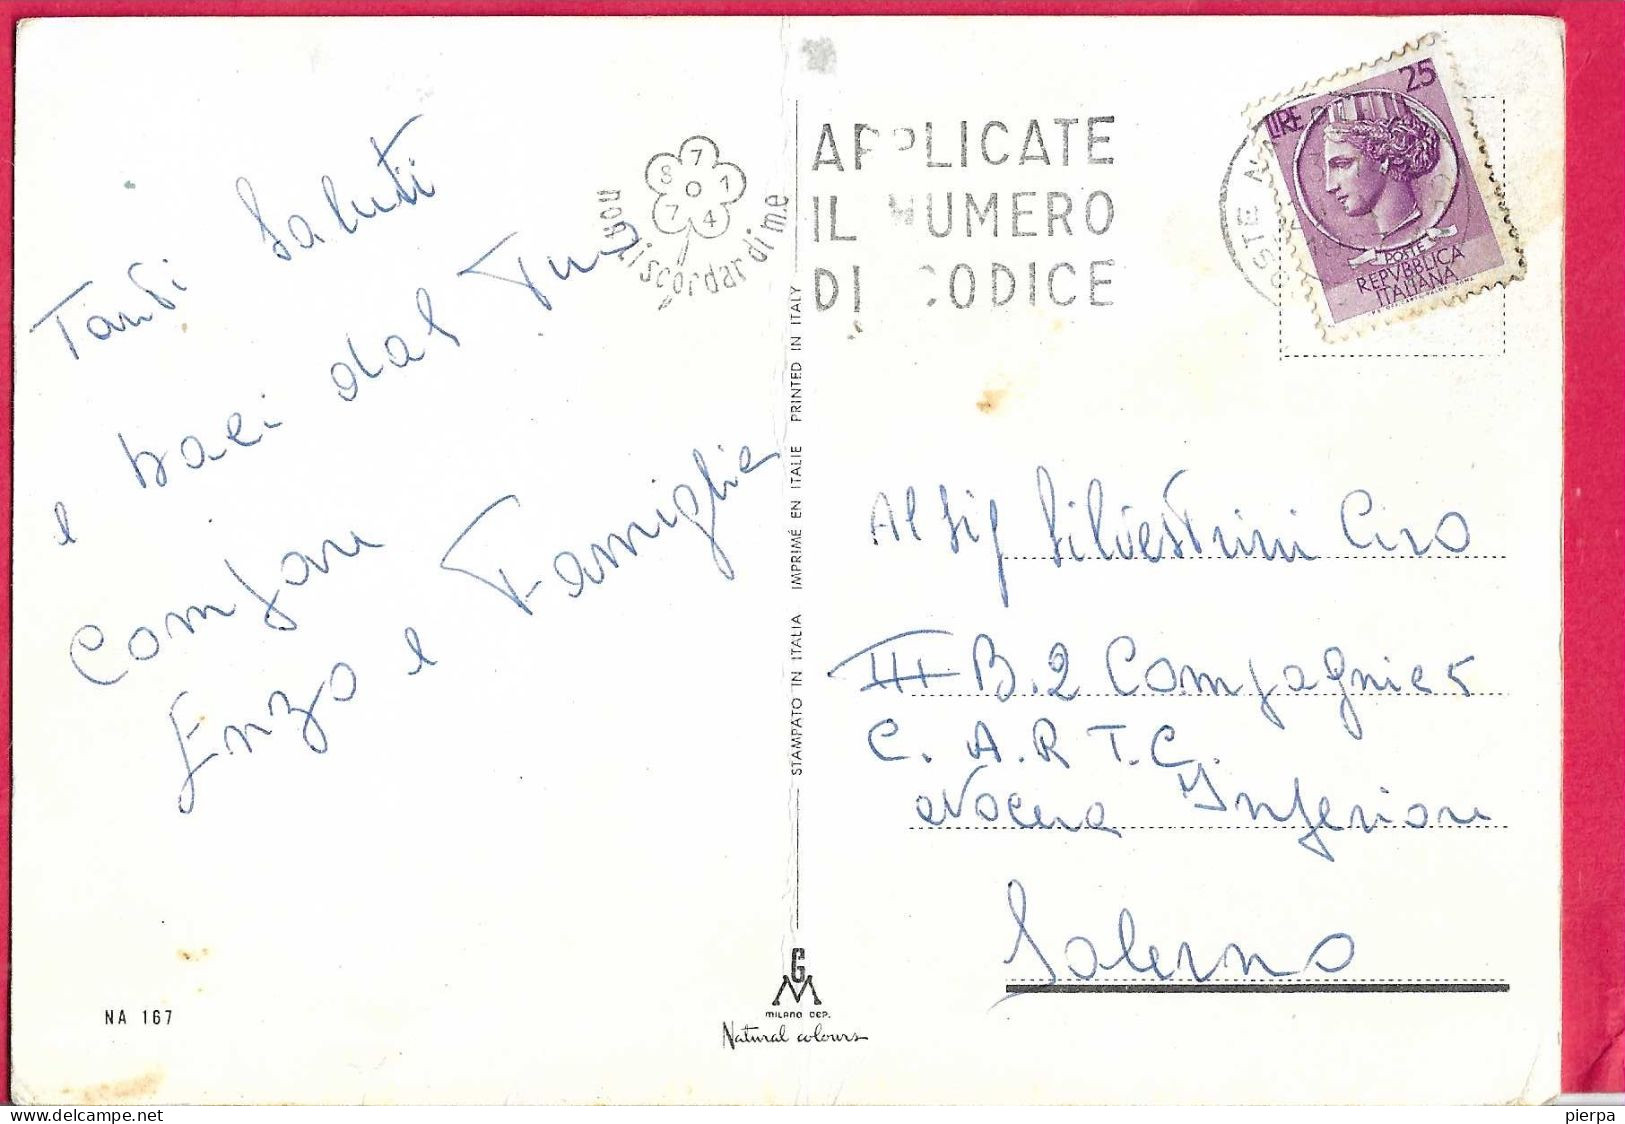 Tanti Saluti
e baci dal Tuo
Compare
Enzo e Famiglia
NA 167
non ti scordar di me
8 7 1 0 7 4
APPLICATE
IL NUMERO
DI CODICE
STAMPATO IN ITALIA IMPRIMÉ EN ITALIE PRINTED IN ITALY
GM
MILANO DEP.
Natural colours
LIRE 25
POSTE
REPVBBLICA
ITALIANA
Al Sig Silvestrini Ciro
III B. 2 Compagnia
C. A. R. T. C.
Nocera Inferiore
Salerno
pierpa